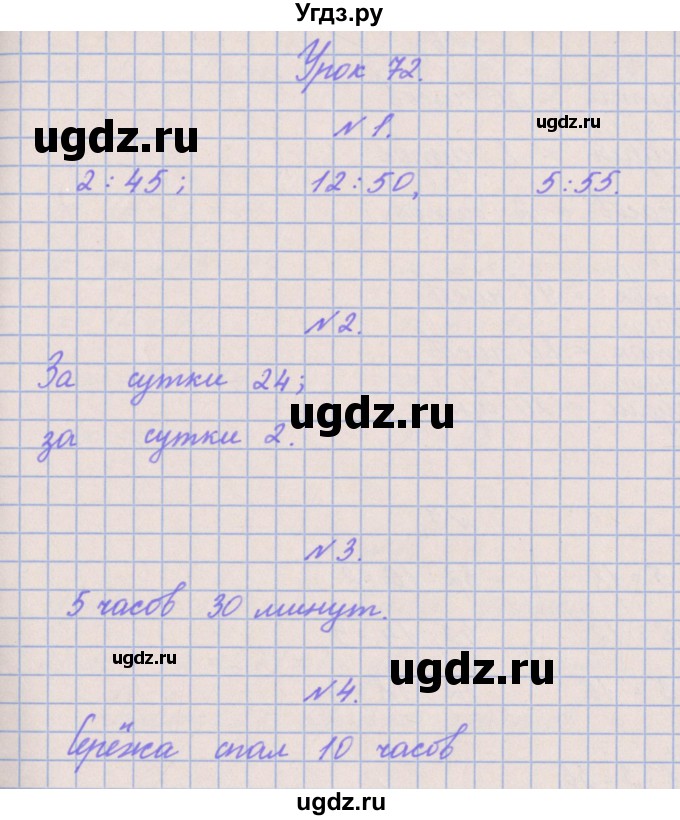 Угдз.ру
Урок 72.
№1.
ugdz.ru
ugdz.ru
2:45; 12:50, 5:55.
№2.
За сутки 24;
ugdz.ru
за сутки 2.
№3.
5 часов 30 минут.
ugdz.ru
ugdz.ru
№4.
Серёжа спал 10 часов
ugdz.ru